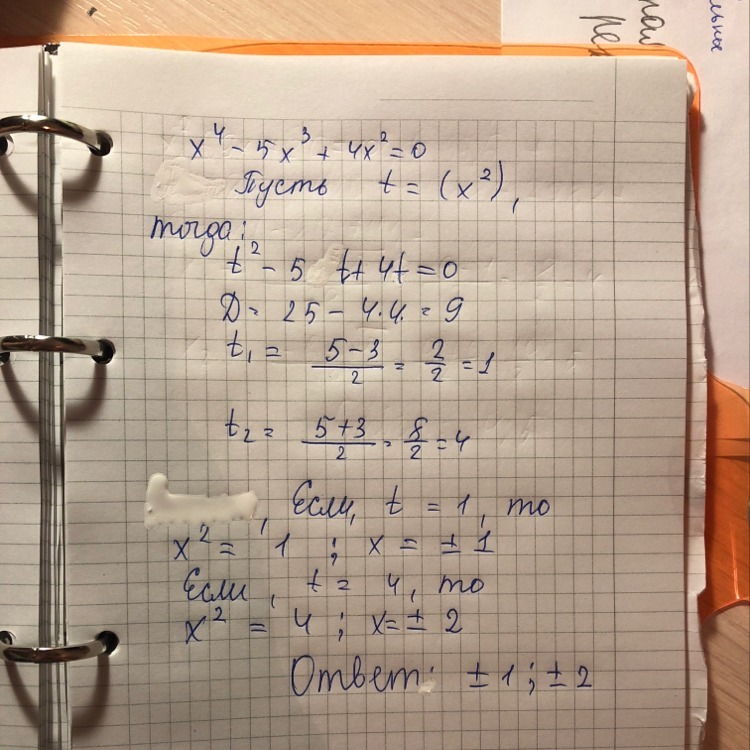 x⁴ - 5x³ + 4x² = 0
Пусть t = (x²),
тогда:
t² - 5 t + 4t = 0
D = 25 - 4·4 = 9
t₁ = (5-3)/2 = 2/2 = 1
t₂ = (5+3)/2 = 8/2 = 4
, Если, t = 1, то
x² = 1 ; x = ±1
Если, t = 4, то
x² = 4 ; x = ± 2
Ответ: ±1 ; ±2